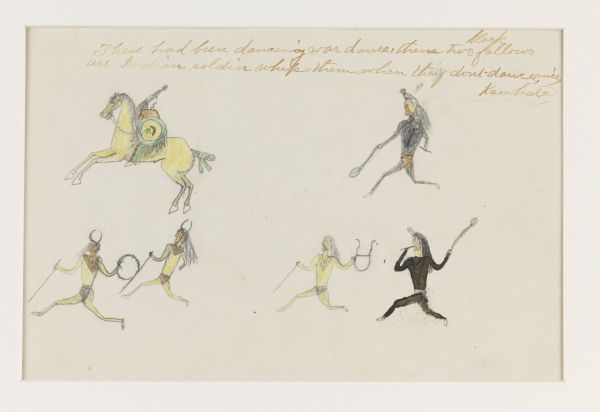 Black
These had been dancing war dance; these two fellows
are Indian soldier whips them when they dont dance nice